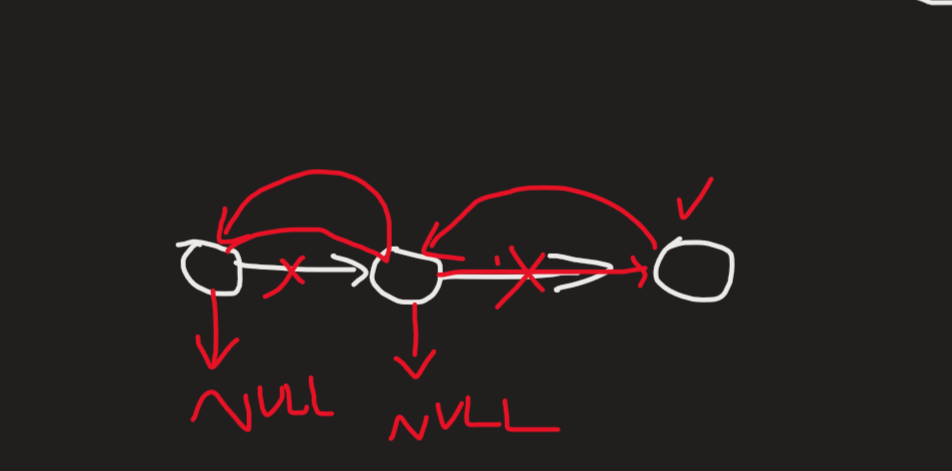 NULL
NULL